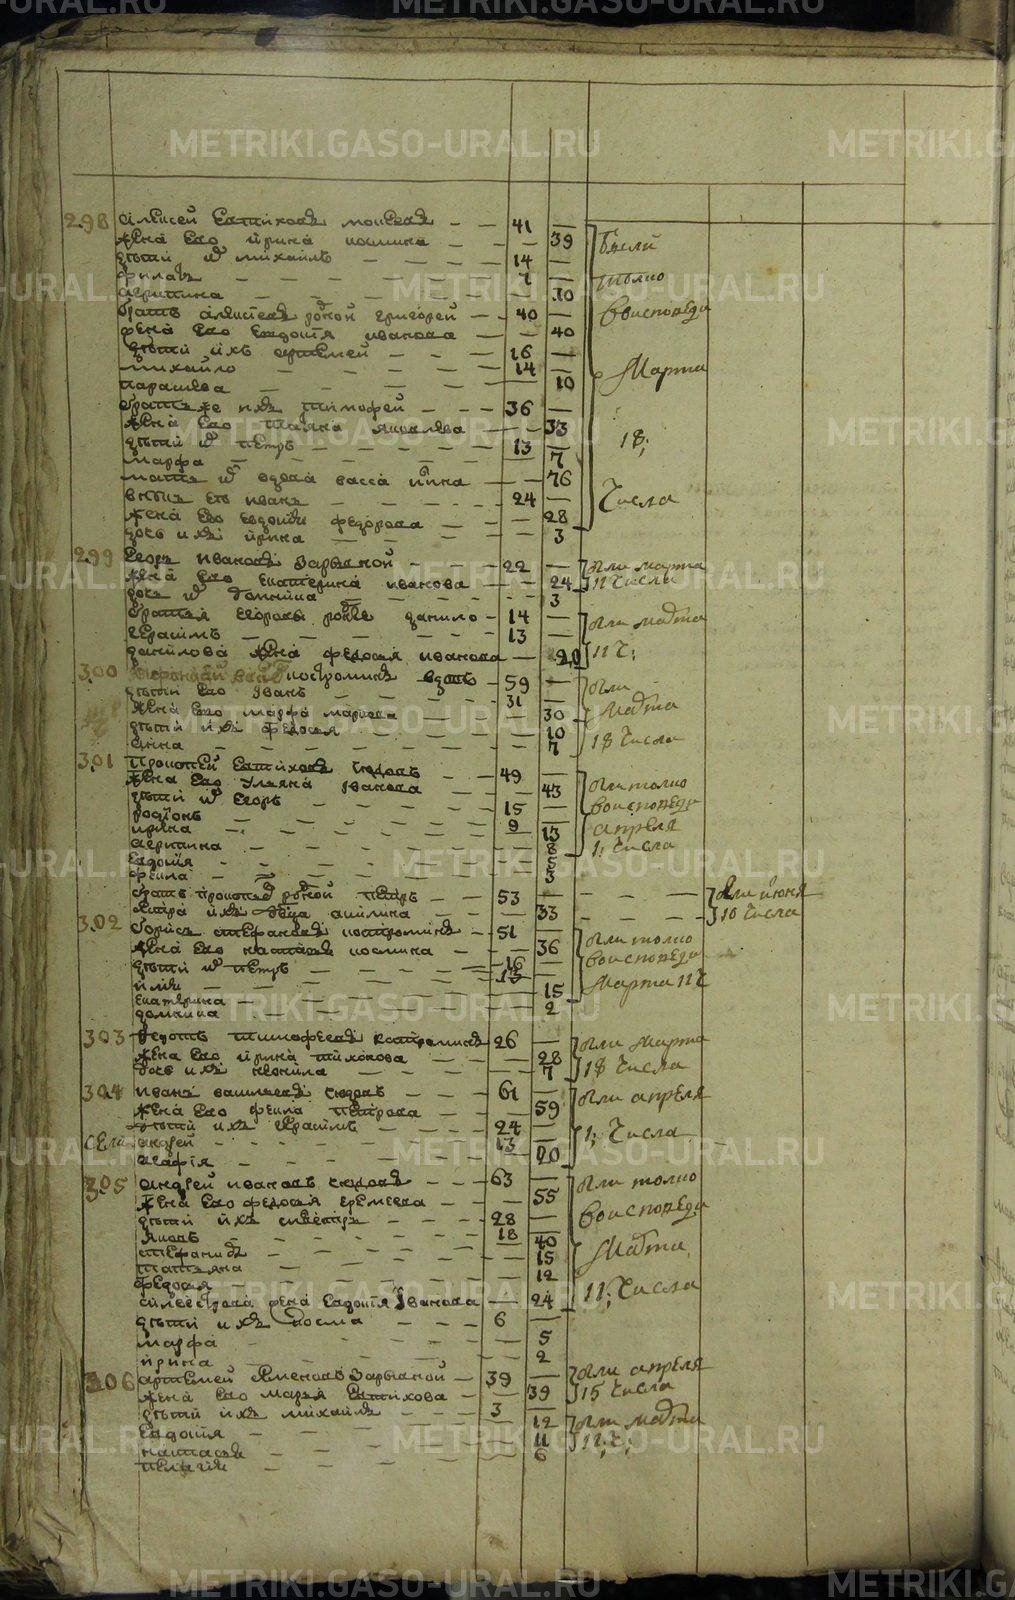 298 алексей Евтихов моисеев 41
жена Ево ирина космина 39
дѣти их михаило 14
агрипина 10
братъ алексеев родной григорей 40
жена Ево Евдокия иванова 40
дѣти ихъ артемей 16
михайло 14
парасква 10
братъ же ихъ тимофей 36
жена Ево татияна яковлева 33
дѣти их петръ 13
марфа 7
мать их вдова васса 76
внукъ его иванъ 24
жена Ево евдокия федорова 28
дочь ихъ ирина 3
Были
толко
воисповеди
Марта
18;
числа
299 Егоръ иванов Зарывной 22
жена Ево екатерина иванова 24
дочь их домнина 3
братья егоровы родные данило 14
герасимъ 13
данилова жена федосия иванова 20
были марта
11 числа
были марта
11 ч;
300 костромин вдовъ 59
дѣти Ево Иванъ 31
жена Ево марфа маркова 30
дѣти ихъ федосия 10
анна 7
были
Марта
18 числа
301 прокопей Евтихов сюдовъ 49
жена Ево Ульяна Иванова 43
дѣти их Егоръ 15
родионъ 9
ирина 13
агрипина 8
Евдокия 5
фекла 3
были толко
воисповеди
апреля
1; числа
братъ прокопев родной петръ 53
сестра ихъ девица акилина 33
были июня
10 числа
302 борисъ стефанов костромин 51
жена Ево настасия космина 36
дѣти их петръ 16
илия 13
екатерина 15
домнина 2
были толко
воисповеди
Марта 11 ч
303 Федотъ тимофеев костромин 26
жена Ево ирина тихонова 28
дочь ихъ неонила 7
были Марта
18 числа
304 иванъ васильев сюдовъ 61
жена Ево фекла петрова 59
дѣти ихъ герасимъ 24
андрей 13
агафия 20
были апреля
1; числа
305 андрей иванов сюдовъ 63
жена Ево федосия еремеева 55
дѣти ихъ силвестръ 28
яковъ 18
стефанида 40
татьяна 15
федосия 12
силвестрова жена Евдокия Иванова 24
дѣти ихъ косма 6
марфа 5
ирина 2
были толко
воисповеди
Марта
11; числа
306 артемей Семеновъ Зарывной 39
жена Ево мария Евтихова 39
дѣти ихъ михайло 3
Евдокия 12
настасия 11
пелагия 6
были апреля
15 числа
были марта
11; ч;
METRIKI.GASO-URAL.RU